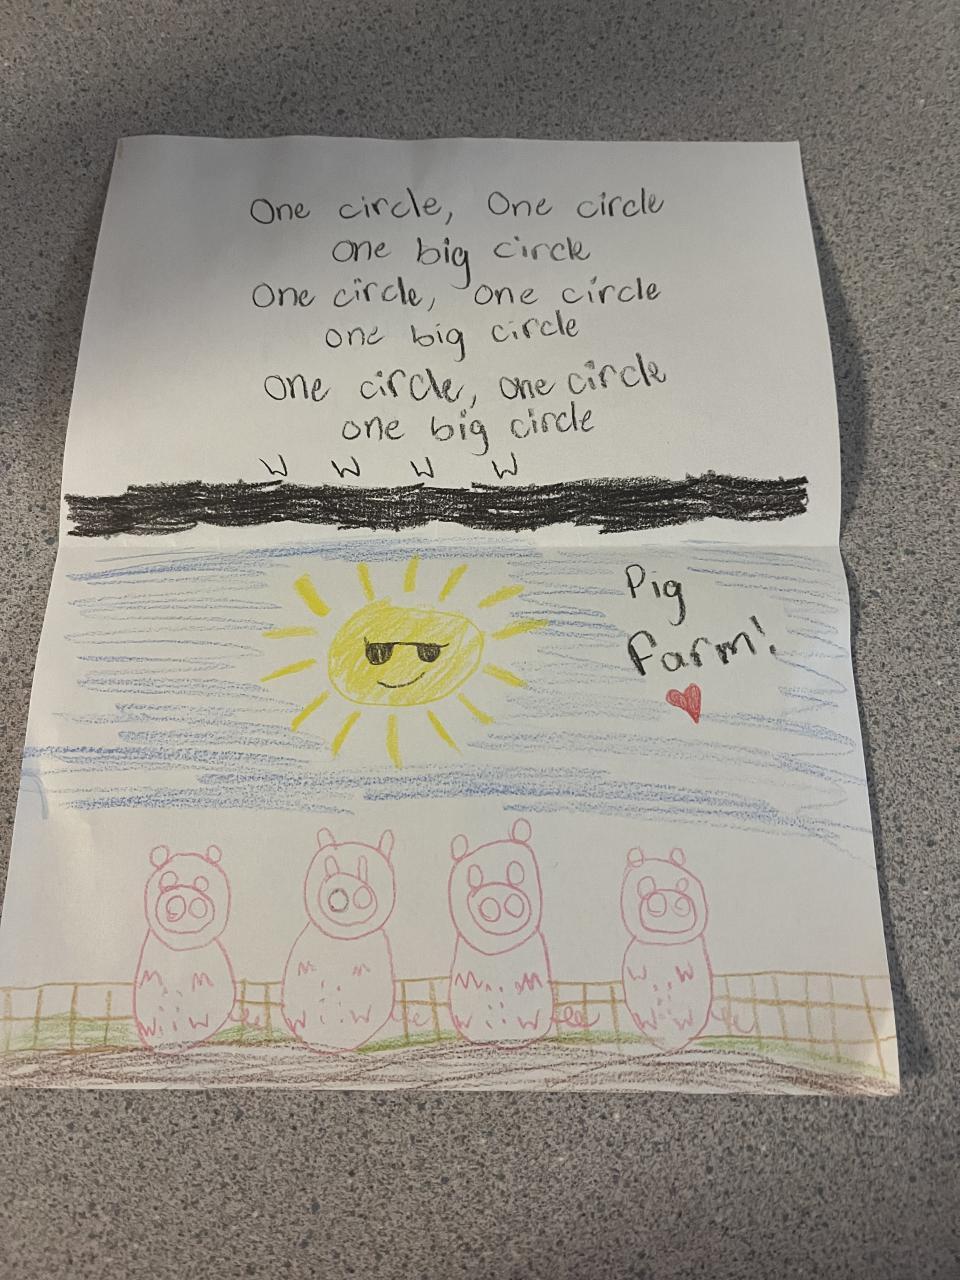 One circle, One circle
one big circle
One circle, one circle
one big circle
one circle, one circle
one big circle
W W W W
Pig
Farm!